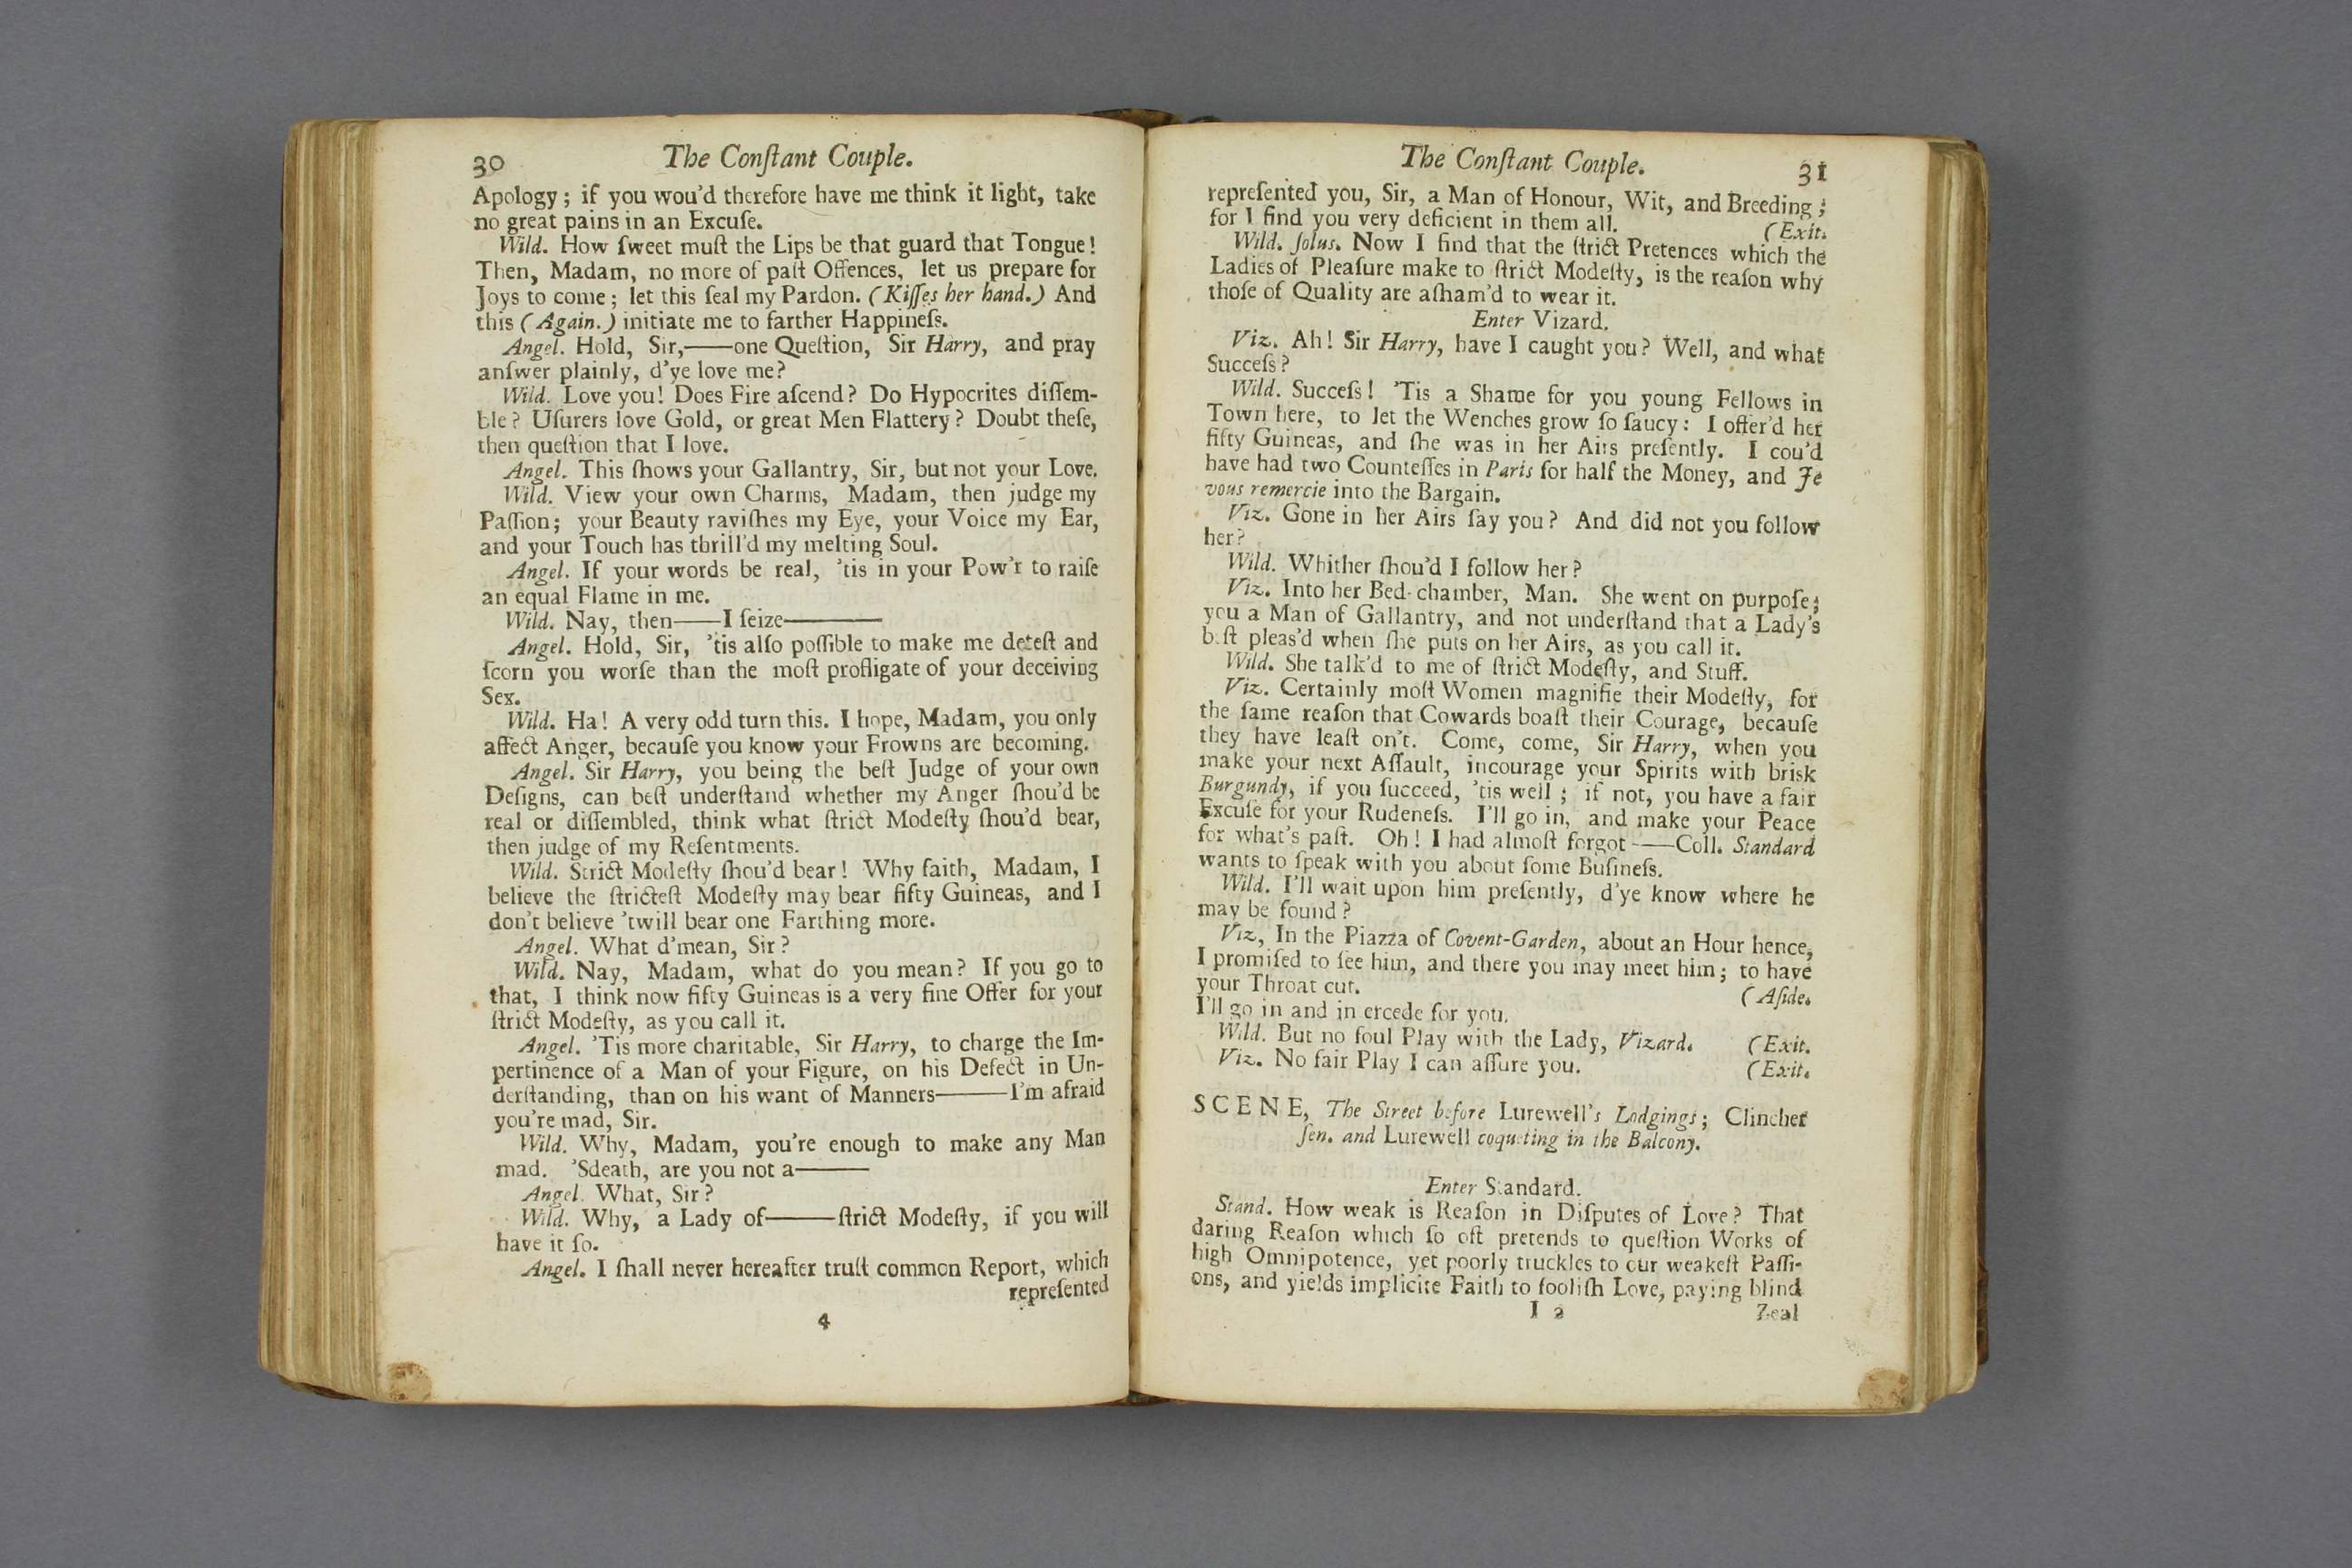 30 The Conſtant Couple.
Apology; if you wou'd therefore have me think it light, take
no great pains in an Excuſe.
Wild. How ſweet muſt the Lips be that guard that Tongue!
Then, Madam, no more of paſt Offences, let us prepare for
Joys to come; let this ſeal my Pardon. (Kiſſes her hand.) And
this (Again.) initiate me to farther Happineſs.
Angel. Hold, Sir,——one Queſtion, Sir Harry, and pray
anſwer plainly, d'ye love me?
Wild. Love you! Does Fire aſcend? Do Hypocrites diſſem-
ble? Uſurers love Gold, or great Men Flattery? Doubt theſe,
then queſtion that I love.
Angel. This ſhows your Gallantry, Sir, but not your Love.
Wild. View your own Charms, Madam, then judge my
Paſſion; your Beauty raviſhes my Eye, your Voice my Ear,
and your Touch has thrill'd my melting Soul.
Angel. If your words be real, 'tis in your Pow'r to raiſe
an equal Flame in me.
Wild. Nay, then——I ſeize————
Angel. Hold, Sir, 'tis alſo poſſible to make me deteſt and
ſcorn you worſe than the moſt profligate of your deceiving
Sex.
Wild. Ha! A very odd turn this. I hope, Madam, you only
affect Anger, becauſe you know your Frowns are becoming.
Angel. Sir Harry, you being the beſt Judge of your own
Deſigns, can beſt underſtand whether my Anger ſhou'd be
real or diſſembled, think what ſtrict Modeſty ſhou'd bear,
then judge of my Reſentments.
Wild. Strict Modeſty ſhou'd bear! Why faith, Madam, I
believe the ſtricteſt Modeſty may bear fifty Guineas, and I
don't believe 'twill bear one Farthing more.
Angel. What d'mean, Sir?
Wild. Nay, Madam, what do you mean? If you go to
that, I think now fifty Guineas is a very fine Offer for your
ſtrict Modeſty, as you call it.
Angel. 'Tis more charitable, Sir Harry, to charge the Im-
pertinence of a Man of your Figure, on his Defect in Un-
derſtanding, than on his want of Manners———I'm afraid
you're mad, Sir.
Wild. Why, Madam, you're enough to make any Man
mad. 'Sdeath, are you not a———
Angel. What, Sir?
Wild. Why, a Lady of———ſtrict Modeſty, if you will
have it ſo.
Angel. I ſhall never hereafter truſt common Report, which
repreſented
4
The Conſtant Couple. 31
repreſented you, Sir, a Man of Honour, Wit, and Breeding;
for I find you very deficient in them all. (Exit.
Wild. ſolus. Now I find that the ſtrict Pretences which the
Ladies of Pleaſure make to ſtrict Modeſty, is the reaſon why
thoſe of Quality are aſham'd to wear it.
Enter Vizard.
Viz. Ah! Sir Harry, have I caught you? Well, and what
Succeſs?
Wild. Succeſs! 'Tis a Shame for you young Fellows in
Town here, to let the Wenches grow ſo ſaucy: I offer'd her
fifty Guineas, and ſhe was in her Airs preſently. I cou'd
have had two Counteſſes in Paris for half the Money, and Je
vous remercie into the Bargain.
Viz. Gone in her Airs ſay you? And did not you follow
her?
Wild. Whither ſhou'd I follow her?
Viz. Into her Bed-chamber, Man. She went on purpoſe;
you a Man of Gallantry, and not underſtand that a Lady's
b.ſt pleas'd when ſhe puts on her Airs, as you call it.
Wild. She talk'd to me of ſtrict Modeſty, and Stuff.
Viz. Certainly moſt Women magnifie their Modeſty, for
the ſame reaſon that Cowards boaſt their Courage, becauſe
they have leaſt on't. Come, come, Sir Harry, when you
make your next Aſſault, incourage your Spirits with brisk
Burgundy, if you ſucceed, 'tis well; if not, you have a fair
Excuſe for your Rudeneſs. I'll go in, and make your Peace
for what's paſt. Oh! I had almoſt forgot——Coll. Standard
wants to ſpeak with you about ſome Buſineſs.
Wild. I'll wait upon him preſently, d'ye know where he
may be found?
Viz, In the Piazza of Covent-Garden, about an Hour hence,
I promiſed to ſee him, and there you may meet him; to have
your Throat cut. (Aſide.
I'll go in and in ercede for you.
Wild. But no foul Play with the Lady, Vizard. (Exit.
Viz. No fair Play I can aſſure you. (Exit.
SCENE, The Street before Lurewell's Lodgings; Clincher
ſen. and Lurewell coqueting in the Balcony.
Enter Standard.
Stand. How weak is Reaſon in Diſputes of Love? That
daring Reaſon which ſo oft pretends to queſtion Works of
high Omnipotence, yet poorly truckles to our weakeſt Paſſi-
ons, and yields implicite Faith to fooliſh Love, paying blind
I 2 Zeal